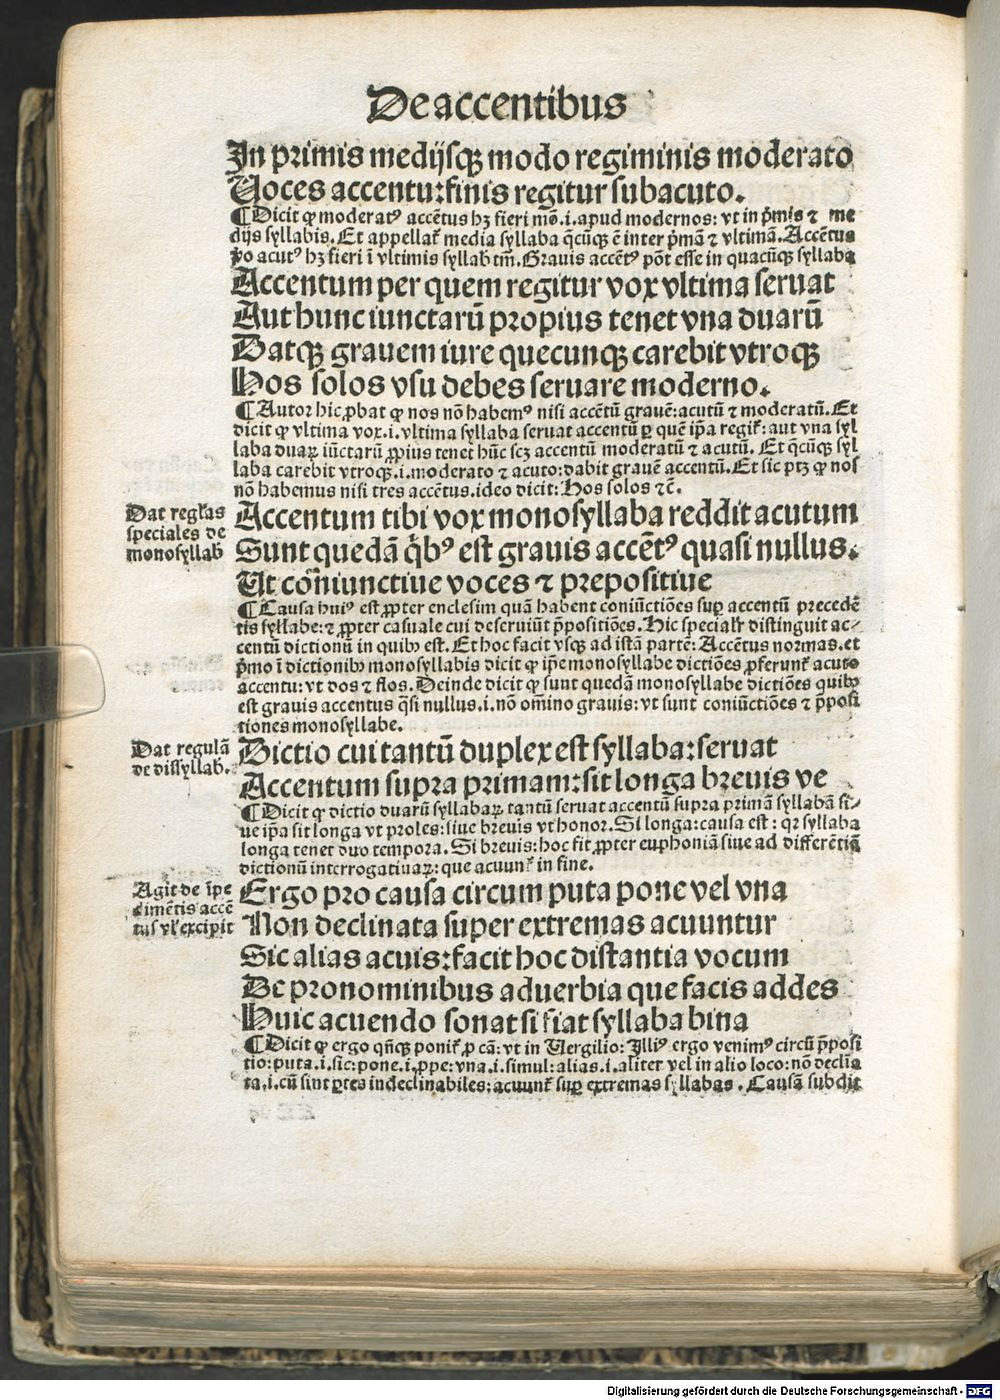 De accentibus
In primis medijsqꝫ modo regiminis moderato
Uoces accentu: finis regitur subacuto.
¶ Dicit ꝙ moderatꝰ accētus hꝫ fieri mō.i.apud modernos: vt in p̄mis ⁊ me
dijs syllabis. Et appellat̄ media syllaba q̄cūqꝫ ē inter p̄mā ⁊ vltimā. Accētus
ꝟo acutꝰ hꝫ fieri ī vltimis syllab tm̄. Grauis accētꝰ pōt esse in quacūqꝫ syllaba
Accentum per quem regitur vox vltima seruat
Aut hunc iunctarū propius tenet vna duarū
Datqꝫ grauem iure quecunqꝫ carebit vtroqꝫ
Hos solos vsu debes seruare moderno.
¶ Autor hic ꝓbat ꝙ nos nō habemꝰ nisi accētū grauē: acutū ⁊ moderatū. Et
dicit ꝙ vltima vox.i.vltima syllaba seruat accentū ꝑ quē ip̄a regit̄: aut vna syl
laba duaꝝ iūctarū ꝓpius tenet hūc scꝫ accentū moderatū ⁊ acutū. Et q̄cūqꝫ syl
laba carebit vtroqꝫ.i.moderato ⁊ acuto: dabit grauē accentū. Et sic ptꝫ ꝙ nos
nō habemus nisi tres accētus. ideo dicit: Hos solos ⁊c̄.
Dat regl̄as
speciales de
monosyllab
Accentum tibi vox monosyllaba reddit acutum
Sunt quedā q̇bꝰ est grauis accētꝰ quasi nullus.
Ut cōniunctiue voces ⁊ prepositiue
¶ Causa huiꝰ est ꝓpter enclesim quā habent coniūctiōes suꝑ accentū precedē
tis syllabe: ⁊ ꝓpter casuale cui deseruiūt p̄positiōes. Hic specialr̄ distinguit ac⸗
centū dictionū in quibꝰ est. Et hoc facit vsqꝫ ad istā partē: Accētus normas. et
p̄mo ī dictionibꝰ monosyllabis dicit ꝙ ip̄e monosyllabe dictiōes ꝓferunt̄ acuto
accentu: vt dos ⁊ flos. Deinde dicit ꝙ sunt quedā monosyllabe dictiōes quibꝰ
est grauis accentus q̄si nullus.i.nō om̄ino grauis: vt sunt coniūctiōes ⁊ p̄posi
tiones monosyllabe.
Dat regulā
de dissyllab.
Dictio cui tantū duplex est syllaba: seruat
Accentum supra primam: sit longa breuis ve
¶ Dicit ꝙ dictio duarū syllabaꝝ tantū seruat accentū supra primā syllabā si⸗
ue ip̄a sit longa vt proles: siue breuis vt honor. Si longa: causa est: qꝛ syllaba
longa tenet duo tempora. Si breuis: hoc fit ꝓpter euphoniā siue ad differētiā
dictionū interrogatiuaꝝ: que acuunt̄ in fine.
Agit de īpe
dimētis accē
tus vl̓ excipit
Ergo pro causa circum puta pone vel vna
Non declinata super extremas acuuntur
Sic alias acuis: facit hoc distantia vocum
De pronominibus aduerbia que facis addes
Huic acuendo sonat si fiat syllaba bina
¶ Dicit ꝙ ergo qn̄qꝫ ponit̄ ꝓ cā: vt in Uergilio: Illiꝰ ergo venimꝰ circū p̄posi
tio: puta.i.sic: pone.i.ꝓpe: vna.i.simul: alias.i.aliter vel in alio loco: nō declīa
ta.i.cū sint ꝑtes indeclinabiles: acuunt̄ suꝑ extremas syllabas. Causā subdit
Digitalisierung gefördert durch die Deutsche Forschungsgemeinschaft - DFG